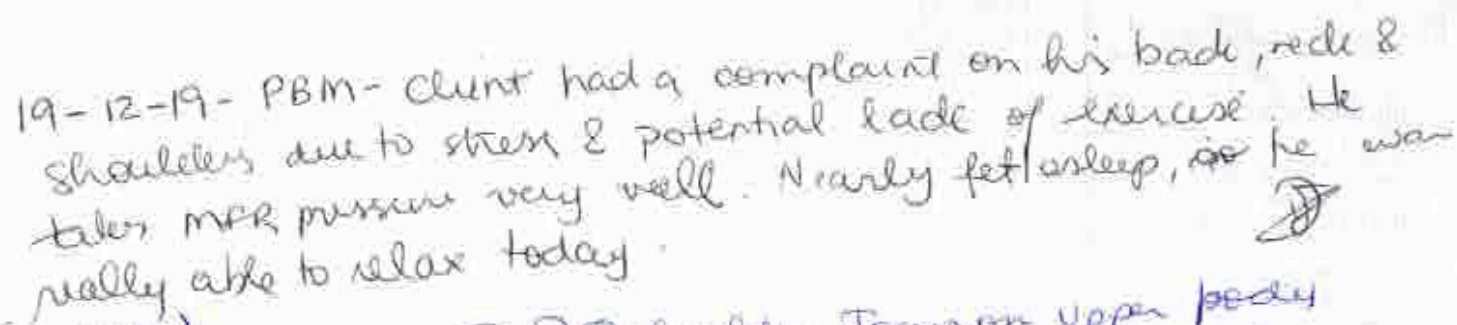 19-12-19- PBM- Client had a complaint on his back, neck &
shoulders due to stress & potential lack of exercise. He
takes MFR pressure very well. Nearly fell asleep, so he was
really able to relax today.
upper body